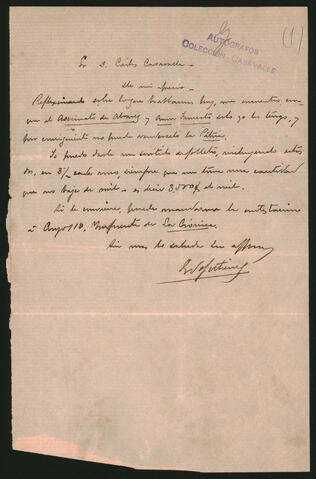 (1)
AUTÓGRAFOS
COLECCIÓN CASAVALLE
Sr D. Carlos Casavalle.
De mi aprecio.
Reflexionando sobre lo que hablamos hoy, me encuentro con
que el Asesinato de Alvarez y solo yo los tengo, y
por consiguiente no puedo vendérselo la Patria.
Lo puedo darle un surtido de folletos, incluyendo estos
dos, en 3½ cada uno, siempre que un tome una cantidad
que no baje de mil — es decir 3,500 $ el mil.
Si le conviene, puede mandarme la contestación
á 110, Imprenta de La Crónica.
Sin mas le saluda su affmo